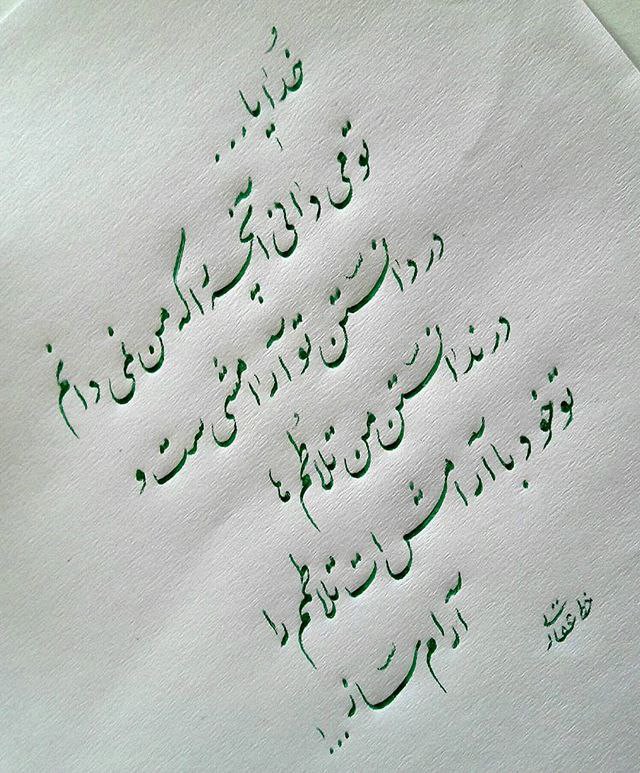 خدایا...
تو می دانی آنچه را که من نمی دانم
در دانستن تو آرامشی ست و
در ندانستن من تلاطُم ها
تو خود با آرامش ات تلاطمم را
آرام ساز...!
خط